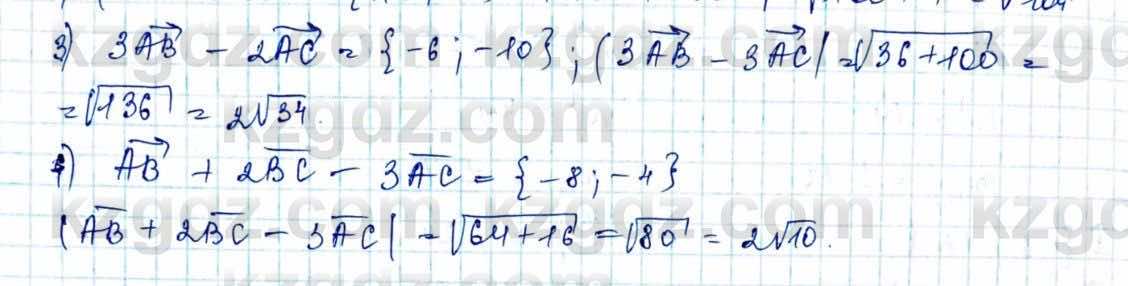 3) 3AB⃗ − 2AC⃗ = {−6; −10}; |3AB⃗ − 3AC⃗| = √36+100 =
= √136 = 2√34.
4) AB⃗ + 2BC̅ − 3AC̅ = {−8; −4}
|AB̅ + 2BC̅ − 3AC̅| = √64+16 = √80 = 2√10.
kzgdz.com